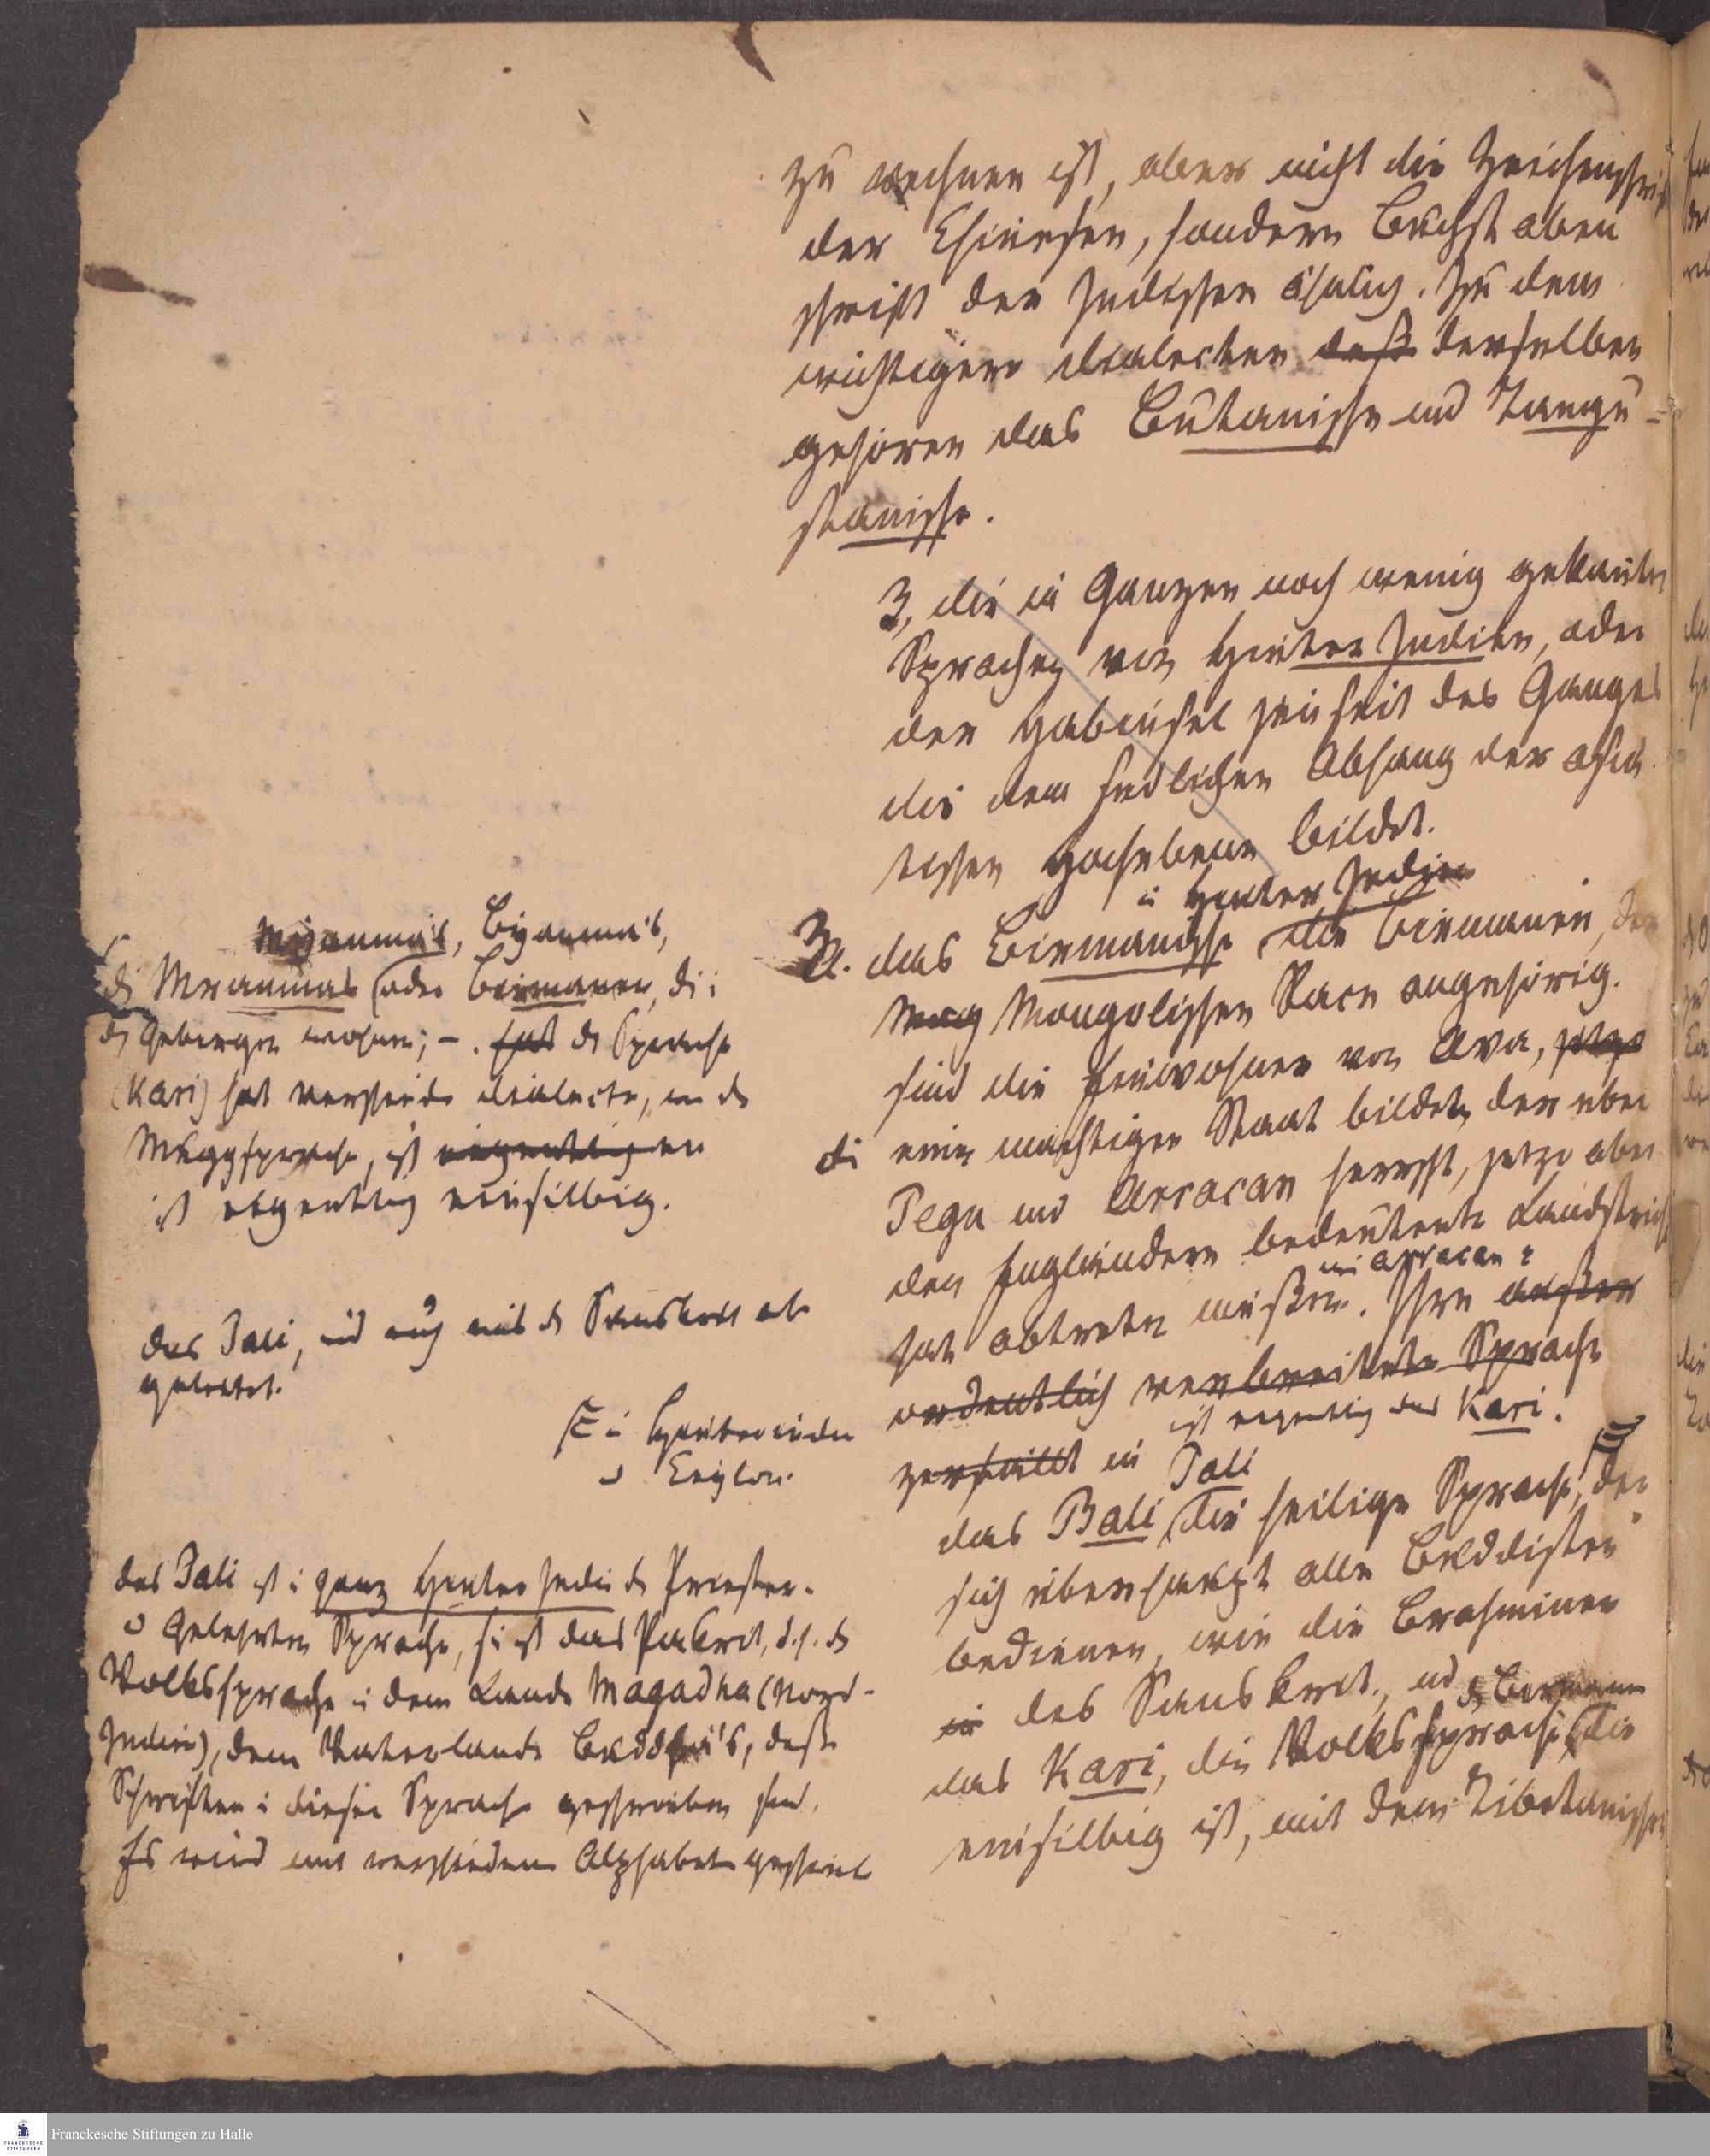 zu rechnen ist, aber nicht die Zeichenschrift
der Chinesen, sondern Buchstaben
schrift der Indischen ähnlich. Zu den
wichtigern Dialecten daß derselben
gehören das Butanische und Tangu-
stanische.
3, die im Ganzen noch wenig gekanten
Sprachen von Hinter Indien, oder
der Habinsel jenseit des Ganges
die den sudlichen Abhang der asia
tischen Hochebene bildet.
i Hinter Indien
3
a. das Birmanische die Birmanen, der
Mong Mongolischen Race angehörig.
sind die Einwohner von Ava, jetzo
di einen machtigen Staat bildet, der uber
Pegu und Arracan herrscht, jetzo aber
den Engländern bedeutente Landstriche
wie Arracan
hat abtreten müßen. Ihre außer
ordentlich verbreitete Sprache
ist eigentlich das Kari.
zerfällt in Pali
das Bali die heilige Sprache, der
sich überhaupt alle Buddisten
bedienen, wie die Brahminen
in des Sanskrit, und
der Birmanen
das Kari, die Volkssprache, die
einsilbig ist, mit dem Tibetanischen
Mijanma's, Bijanma's,
di Mranmas oder Birmanen, di i
d Gebirgen wohnen; –. hat di Sprache
(Kari) hat verschiede dialecte, wie di
Muggsprache, ist eigentlich
ist eigentlich einsilbig.
das Pali, ist auch mit d Sanskrit
geleitet.
i Hinterindien
u Ceylon.
das Pali ist i ganz Hinter Indien di Priester-
u Gelehrten Sprache, si ist das Pakrit, d.h. di
Volkssprache i dem Lande Magadha (Nord-
Indien), dem Vaterlande Buddha's, deße
Schriften i dieser Sprache geschrieben sind.
Es wird mit verschiedenen Alphabeten geschrieb
Franckesche Stiftungen zu Halle